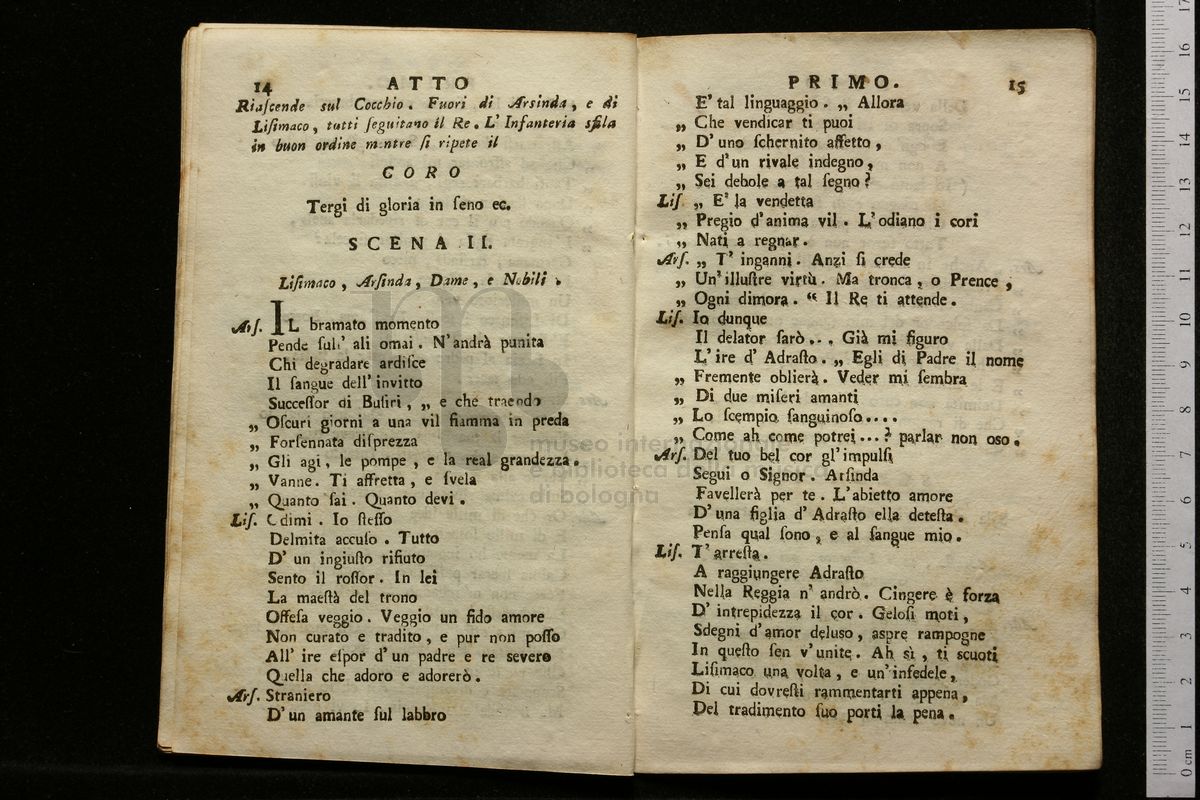 14 ATTO
Riaſcende sul Cocchio. Fuori di Arsinda, e di
Liſimaco, tutti ſeguitano il Re. L' Infanteria sfila
in buon ordine mentre ſi ripete il
CORO
Tergi di gloria in ſeno ec.
SCENA II.
Liſimaco, Arſinda, Dame, e Nobili.
Arſ. IL bramato momento
Pende ſull' ali omai. N'andrà punita
Chi degradare ardiſce
Il ſangue dell' invitto
Succeſſor di Buſiri, „ e che traendo
„ Oſcuri giorni a una vil fiamma in preda
„ Forſennata diſprezza
„ Gli agi, le pompe, e la real grandezza.
„ Vanne. Ti affretta, e ſvela
„ Quanto ſai. Quanto devi.
Liſ. Odimi. Io ſteſſo
Delmita accuſo. Tutto
D' un ingiuſto rifiuto
Sento il roſſor. In lei
La maeſtà del trono
Offeſa veggio. Veggio un fido amore
Non curato e tradito, e pur non poſſo
All' ire eſpor d' un padre e re severo
Quella che adoro e adorerò.
Arſ. Straniero
D' un amante ſul labbro
PRIMO. 15
E' tal linguaggio. „ Allora
„ Che vendicar ti puoi
„ D' uno ſchernito affetto,
„ E d' un rivale indegno,
„ Sei debole a tal ſegno?
Liſ. „ E' la vendetta
„ Pregio d'anima vil. L'odiano i cori
„ Nati a regnar.
Arſ. „ T' inganni. Anzi ſi crede
„ Un' illuſtre virtù. Ma tronca, o Prence,
„ Ogni dimora. “ Il Re ti attende.
Liſ. Io dunque
Il delator farò... Già mi figuro
L' ire d' Adraſto. „ Egli di Padre il nome
„ Fremente oblierà. Veder mi ſembra
„ Di due miſeri amanti
„ Lo ſcempio ſanguinoſo....
„ Come ah come potrei...? parlar non oso.
Arſ. Del tuo bel cor gl' impulſi
Segui o Signor. Arſinda
Favellerà per te. L'abietto amore
D' una figlia d' Adraſto ella deteſta.
Penſa qual ſono, e al ſangue mio.
Liſ. T' arreſta.
A raggiungere Adraſto
Nella Reggia n' andrò. Cingere è forza
D' intrepidezza il cor. Geloſi moti,
Sdegni d' amor deluso, aspre rampogne
In queſto ſen v' unite. Ah sì, ti scuoti
Liſimaco una volta, e un' infedele,
Di cui dovreſti rammentarti appena,
Del tradimento ſuo porti la pena.
museo internazionale
e biblioteca della musica
di bologna
0 cm 1 2 3 4 5 6 7 8 9 10 11 12 13 14 15 16 17